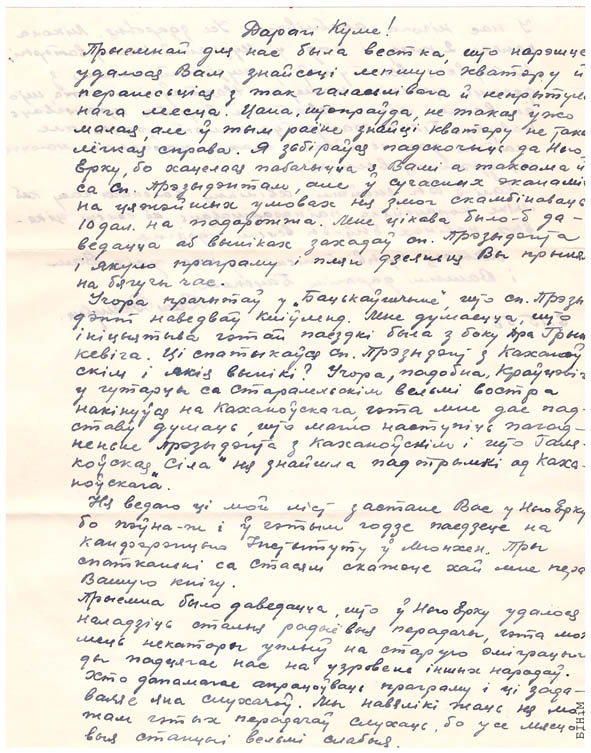 Дарагі Куме!
Прыемнай для нас была вестка, што нарэшце
удалося Вам знайсьці лепшую кватэру й
перанесьціся з так галасьлівога й непрытуль
нага месца. Цана, штопраўда, не такая ўжо
малая, але ў тым раёне знайці кватэру не такая
лёгкая справа. Я зьбіраўся падскочыць да Нью
Ёрку, бо хацелася пабачыцца з Вамі а таксама й
са сп. Прэзыдэнтам, але ў сучасных эканамі
на цяжэйшых умовах ня змог скамбінаваць
10 дал. на падарожжа. Мне цікава было-б да-
ведацца аб выніках захадаў сп. Прэзыдэнта
і якую праграму і плян дзеяньня Вы прыня
на бягучы час.
Учора прачытаў у „Бацькаўшчыне" што сп. Прэзы
дэнт наведваў Кліўленд. Мне думаецца, што
ініцыятыва гэтай паездкі была з боку Гры
кевіча. Ці спатыкаўся сп. Прэзыдэнт з Каханоў
скім і якія вынікі? Учора, падобна, Краўцэвіч
у гутарцы са Старамельскім вельмі востра
накінуўся на Каханоўскага, гэта мне дае пад-
ставу думаць, што магло наступіць пагад-
неньне Прэзыдэнта з Каханоўскім і што
„Сіла" ня знайшла падтрымкі ад Каха-
ноўскага.
Ня ведаю ці мой ліст застане Вас у Нью Ёрку
бо пэўна-ж і ў гэтым годзе паедзеце на
канфэрэнцыю Інстытуту ў Мюнхен. Пры
спатканьні са Стасям скажэце хай мне пера
Вашую кнігу.
Прыемна было даведацца, што ў Нью Ёрку удалося
наладзіць сталыя радыёвыя перадачы, гэта мо
мець некаторы уплыў на старую эміграцыю
ды падцягае нас на узровень іншых народаў.
Хто дапамагае апрацоўваць праграму і ці зада-
вальяе яна слухачоў. Мы навялікі жаль ня мо
жам гэтых перадачаў слухаць, бо усе мясцо
выя станцыі вельмі слабыя.
БІНІМ